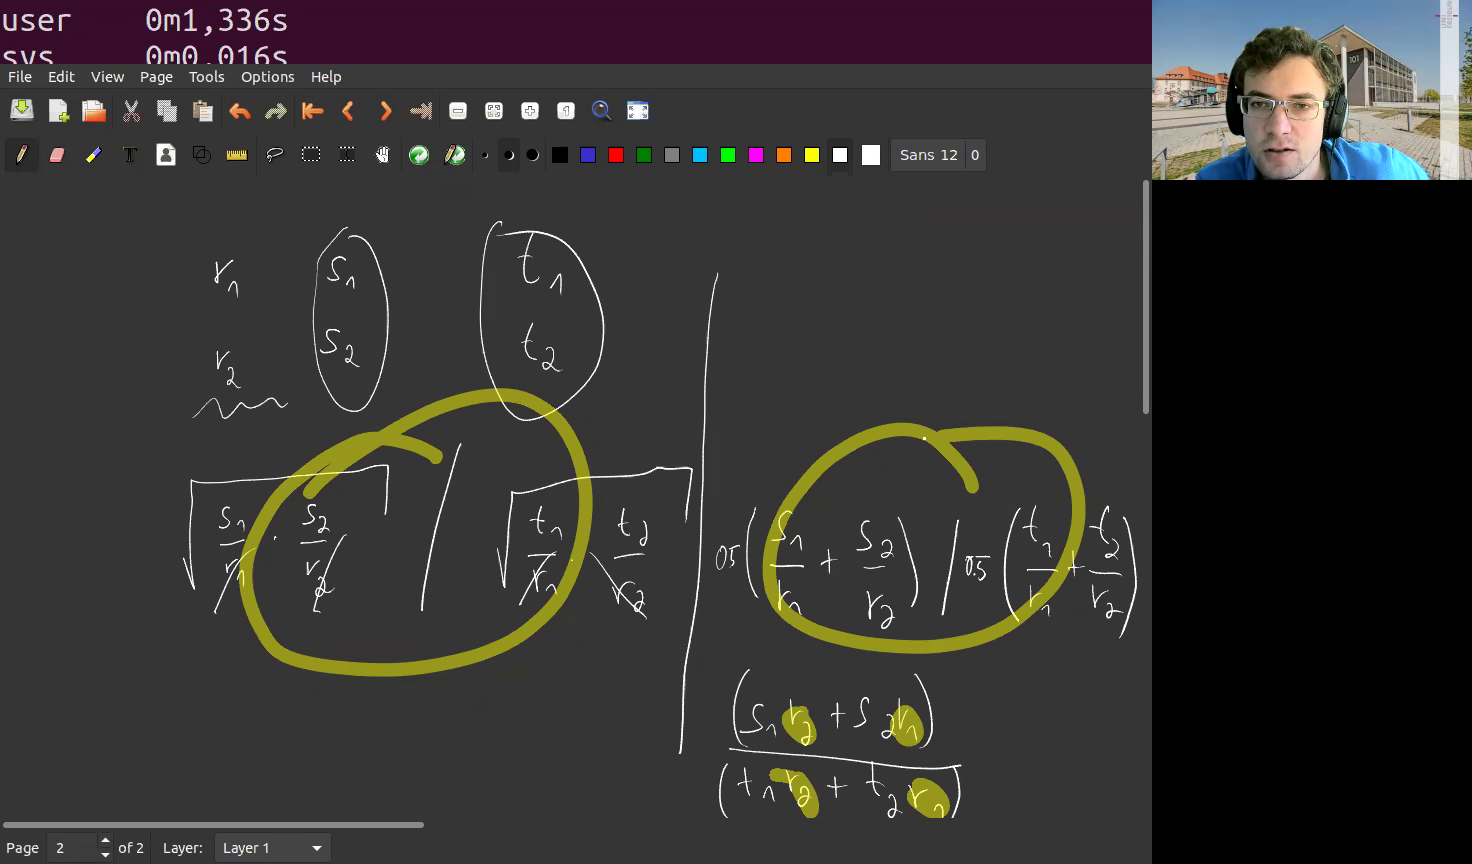 user 0m1,336s
sys 0m0,016s
File Edit View Page Tools Options Help
Sans 12 0
r1 s1 t1
r2 s2 t2
√(s1/r1 · s2/r2) / √(t1/r1 · t2/r2)
0.5 (s1/r1 + s2/r2) / 0.5 (t1/r1 + t2/r2)
(s1 r2 + s2 r1)
(t1 r2 + t2 r1)
101
Page 2 of 2 Layer: Layer 1